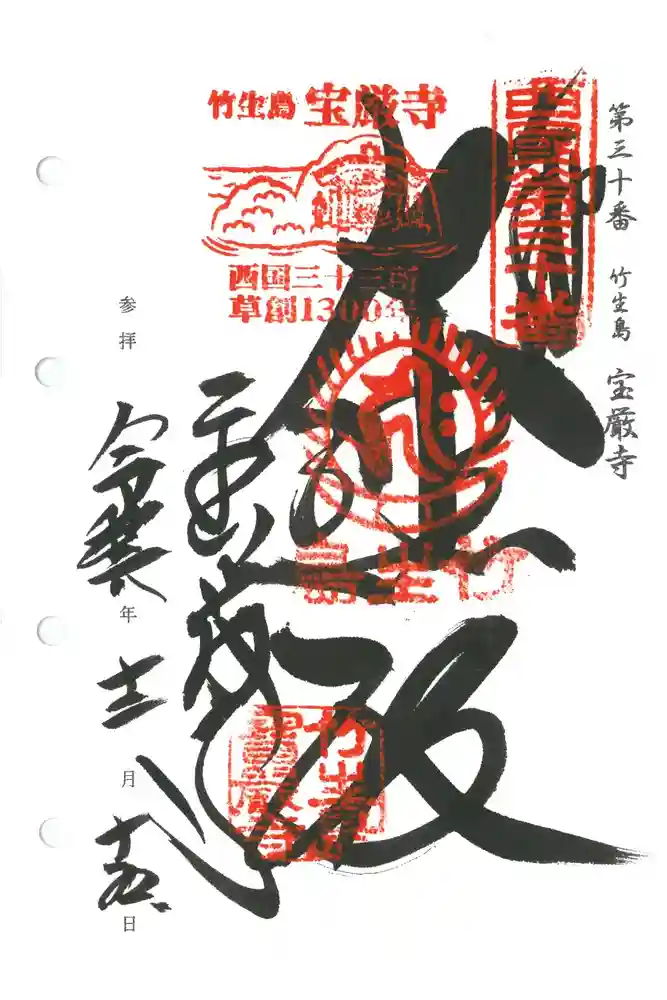 第三十番 竹生島 宝厳寺
西国第三十番
竹生島 宝厳寺
西国三十三所
草創1300年
大悲殿
竹生島
竹生島寶厳寺
参拝
令和年十二月十五日